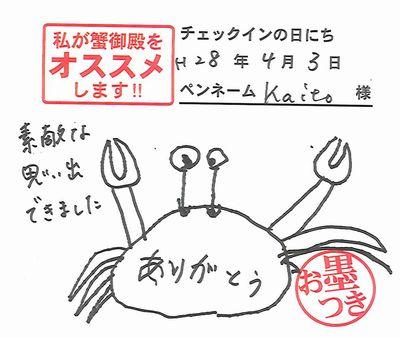 私が蟹御殿を
オススメ
します!!
チェックインの日にち
H28年4月3日
ペンネーム Kaito 様
素敵な
思い出
できました
ありがとう
お墨つき